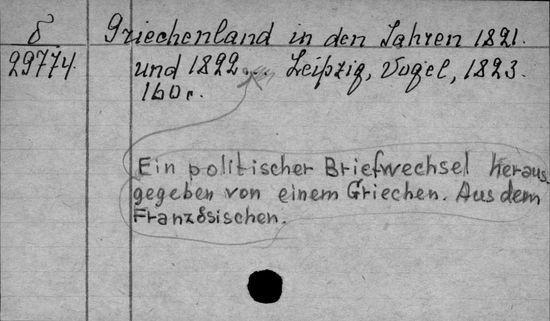 δ
29774.
Griechenland in den Jahren 1821.
und 1822... Leipzig, Vogel, 1823.
160 с.
Ein politischer Briefwechsel heraus
gegeben von einem Griechen. Aus dem
Französischen.